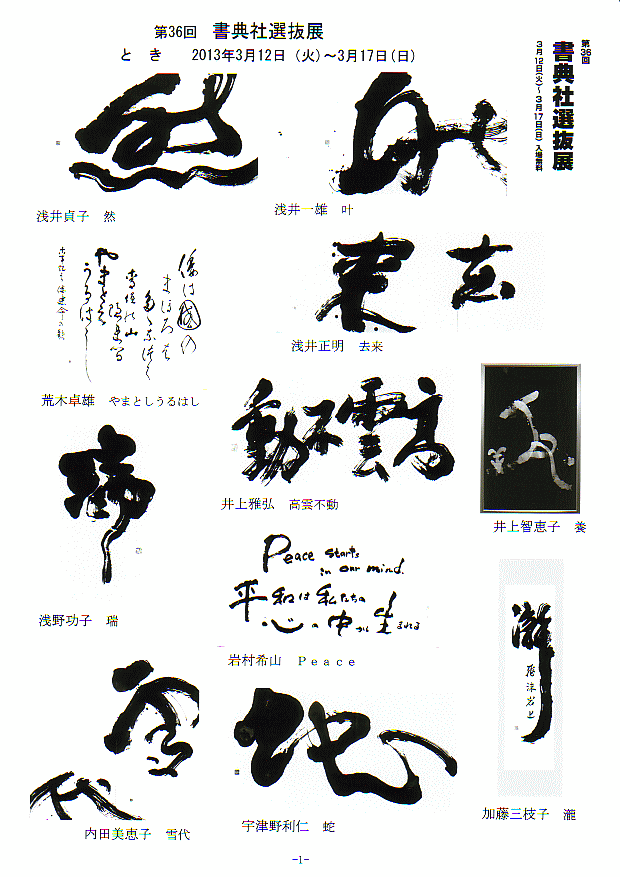 第36回　書典社選抜展
と　き　2013年3月12日（火）～3月17日(日)
第36回
書典社選抜展
3月12日(火)～3月17日(日) 入場無料
浅井貞子　然
浅井一雄　叶
倭は國の
まほろば
やまとし
うるはし
荒木卓雄　やまとしうるはし
去
来
浅井正明　去来
高雲不動
井上雅弘　高雲不動
井上智恵子　養
瑞
浅野功子　瑞
Peace starts
in our mind.
平和は私たちの
心の中から生まれる
岩村希山　Ｐｅａｃｅ
瀧
加藤三枝子　瀧
雪
代
内田美恵子　雪代
蛇
宇津野利仁　蛇
-1-